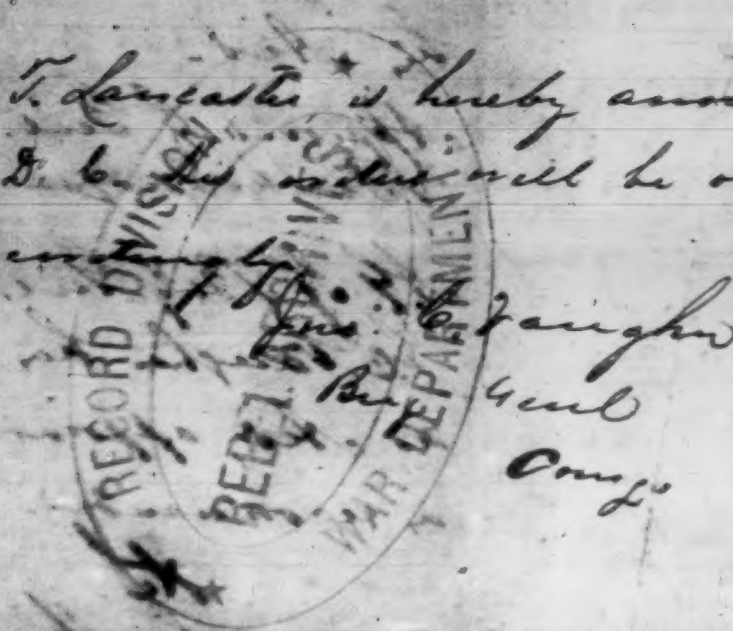 T. Lancaster is hereby
D. C. His orders will be
Jno. C. Vaughn
Brig Genl
Comg.
RECORD DIVISION
REBEL ARCHIVES
WAR DEPARTMENT